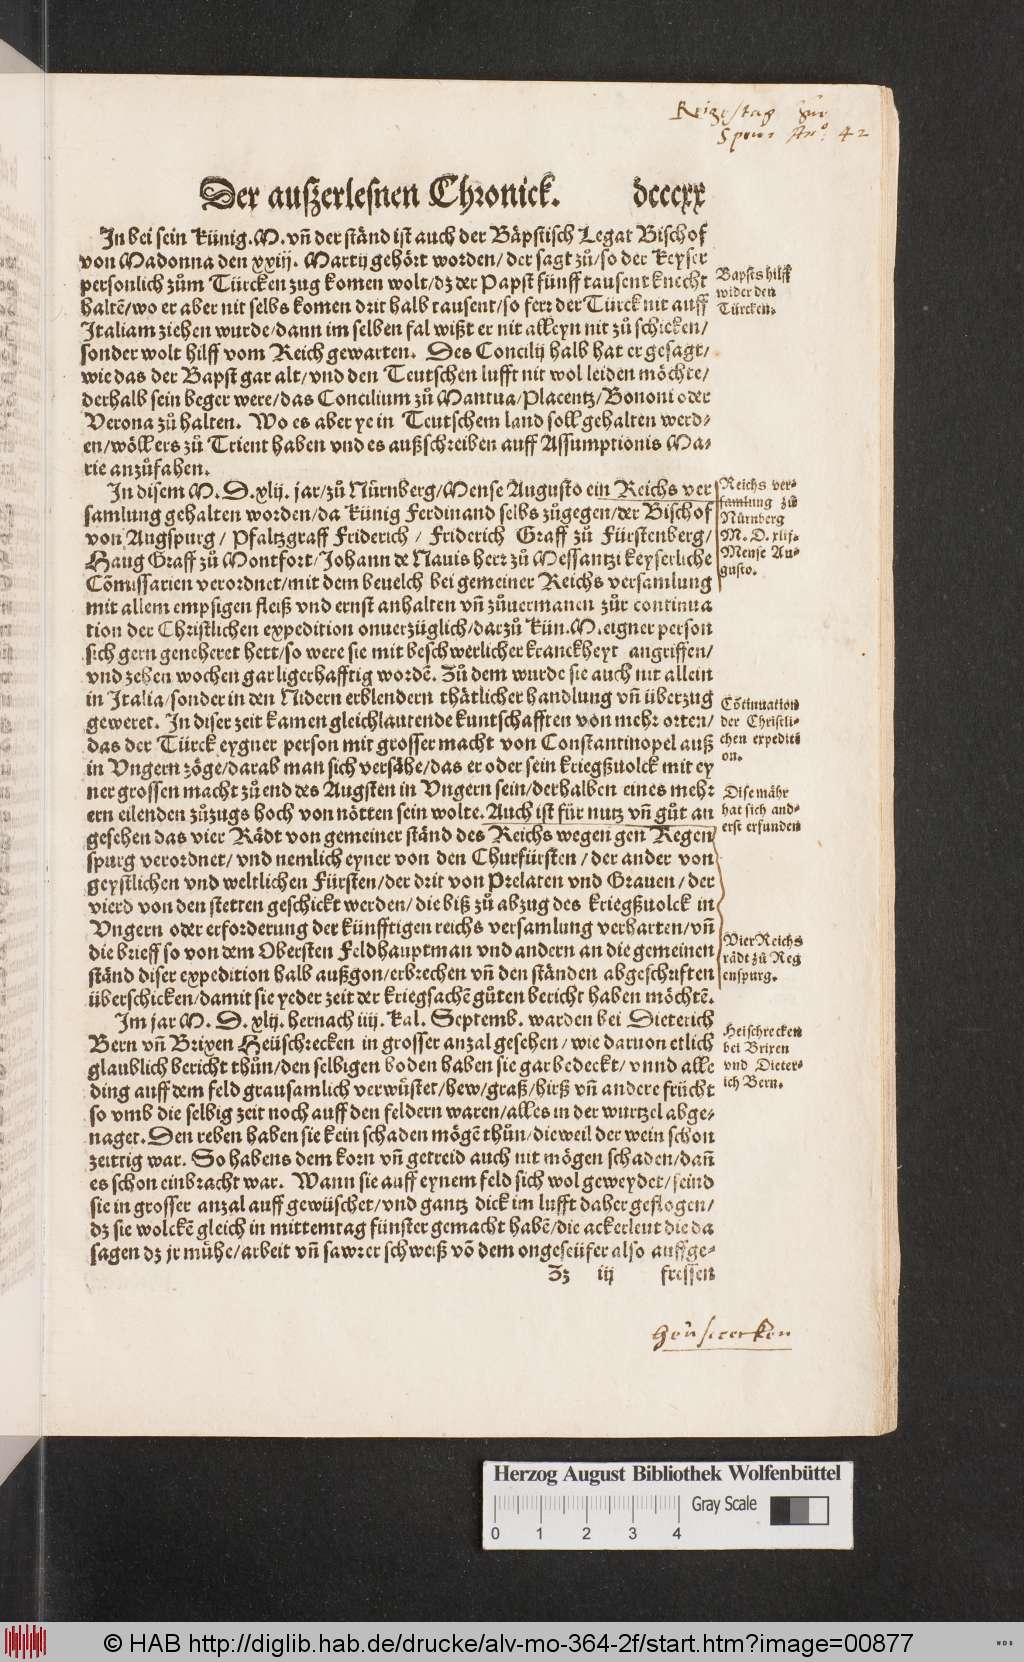 Reigstag
Speir Anº. 42
Der auszerlesnen Chronick. dccccxx
In bei sein Künig. M. vñ der ständ ist auch der Bäpstisch Legat Bischof
von Madonna den xxiij. Martij gehört worden/ der sagt zů/ so der Keyser
persönlich zům Türcken zug komen wolt/ dz der Papst fünff tausent knecht
haltē/ wo er aber nit selbs komen drit halb tausent/ so ferr der Türck nit auff
Italiam ziehen wurde/ dann im selben fal wißt er nit alleyn nit zů schicken/
sonder wolt hilff vom Reich gewarten. Des Concilij halb hat er gesagt/
wie das der Bapst gar alt/ vnd den Teutschen lufft nit wol leiden möchte/
derhalb sein beger were/ das Concilium zů Mantua/ Placentz/ Bononi oder
Verona zů halten. Wo es aber ye in Teutschem land soll gehalten werd-
en/ wöll ers zů Trient haben vnd es außschreiben auff Assumptionis Ma-
rie anzůfahen.
Bapsts hilff
wider den
Türcken.
In disem M. D. xlij. jar/ zů Nürnberg/ Mense Augusto ein Reichs ver
samlung gehalten worden/ da Künig Ferdinand selbs zůgegen/ der Bischof
von Augspurg/ Pfaltzgraff Friderich/ Friderich Graff zů Fürstenberg/
Haug Graff zů Montfort/ Johann de Nauis herr zů Messantzi keyserliche
Cōmissarien verordnet/ mit dem beuelch bei gemeiner Reichs versamlung
mit allem empsigen fleiß vnd ernst anhalten vñ zůuermanen zůr continua
tion der Christlichen expedition onuerzüglich/ darzů Kün. M. eigner person
sich gern geneheret hett/ so were sie mit beschwerlicher kranckheyt angriffen/
vnd zehen wochen gar ligerhafftig wordē. Zů dem wurde sie auch nit allein
in Italia/ sonder in den Nidern erblendern thätlicher handlung vñ überzug
geweret. In diser zeit kamen gleichlautende kuntschafften von mehr orten/
das der Türck eygner person mit grosser macht von Constantinopel auß
in Vngern zöge/ darab man sich versähe/ das er oder sein kriegßuolck mit ey
ner grossen macht zů end des Augsten in Vngern sein/ derhalben eines mehr
ern eilenden zůzugs hoch von nötten sein wolte. Auch ist für nutz vñ gůt an
gesehen das vier Rädt von gemeiner ständ des Reichs wegen gen Regen
spurg verordnet/ vnd nemlich eyner von den Churfürsten/ der ander von
geystlichen vnd weltlichen Fürsten/ der drit von Prelaten vnd Grauen/ der
vierd von den stetten geschickt werden/ die biß zů abzug des kriegßuolck in
Vngern oder erforderung der künfftigen reichs versamlung verharten/ vñ
die brieff so von dem Obersten Feldhauptman vnd andern an die gemeinen
ständ diser expedition halb außgon/ erbrechen vñ den ständen abgeschriften
überschicken/ damit sie yeder zeit der kriegsachē gůten bericht haben möchtē.
Reichs ver-
samlung zů
Nürnberg
M. D. xlij.
Mense Au-
gusto.
Cōtinuation
der Christli-
chen expediti
on.
Dise mähr
hat sich and-
erst erfunden
Vier Reichs
rädt zů Reg
enspurg.
Im jar M. D. xlij. hernach iiij. Kal. Septemb. warden bei Dieterich
Bern vñ Brixen Heüschrecken in grosser anzal gesehen/ wie daruon etlich
glaublich bericht thůn/ den selbigen boden haben sie gar bedeckt/ vnnd alle
ding auff dem feld grausamlich verwüstet/ hew/ graß/ hirß vñ andere frücht
so vmb die selbig zeit noch auff den feldern waren/ alles in der wurtzel abge-
naget. Den reben haben sie kein schaden mögē thůn/ dieweil der wein schon
zeittig war. So habens dem korn vñ getreid auch nit mögen schaden/ dañ
es schon einbracht war. Wann sie auff eynem feld sich wol geweydet/ seind
sie in grosser anzal auff gewüschet/ vnd gantz dick im lufft daher geflogen/
dz sie wolckē gleich in mittemtag fünster gemacht habē/ die ackerleut die da
sagen dz jr mühe/ arbeit vñ sawrer schweiß vō dem ongeseüfer also auffge-
Heischrecken
bei Brixen
vnd Dieter-
ich Bern.
Zz iij fressen
Heuscrecken
Herzog August Bibliothek Wolfenbüttel
Gray Scale
0 1 2 3 4
© HAB http://diglib.hab.de/drucke/alv-mo-364-2f/start.htm?image=00877